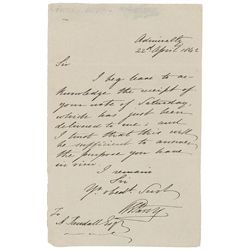 Admiralty
22d April 1842
Sir
I beg leave to ac-
knowledge the receipt of
your note of Saturday,
which has just been
delivered to me; and
I trust that this will
be sufficient to answer
the purpose you have
in view.
I remain
Sir
Yr obedt. Servt
To
A. Kendall Esqr